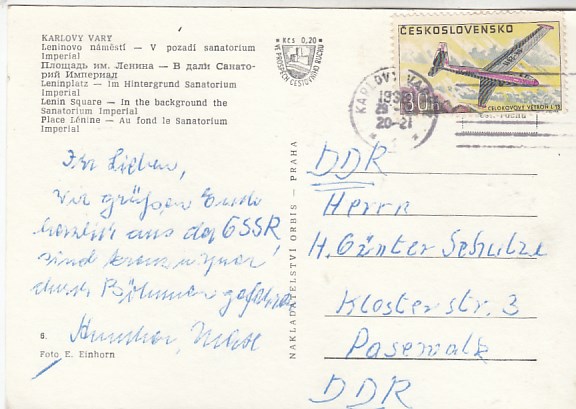 KARLOVY VARY
Leninovo náměstí — V pozadí sanatorium
Imperial
Площадь им. Ленина — В дали Санато-
рий Империал
Leninplatz — Im Hintergrund Sanatorium
Imperial
Lenin Square — In the background the
Sanatorium Imperial
Place Lénine — Au fond le Sanatorium
Imperial
Kčs 0,20
VE PROSPĚCH CESTOVNÍHO RUCHU
ČESKOSLOVENSKO
30h
KARLOVY VARY
20-21
Ihr Lieben,
wir grüßen Euch
herzlich aus der ČSSR
sind
durch Böhmen gefahren
6.
Foto E. Einhorn
NAKLADATELSTVÍ ORBIS — PRAHA
DDR
Herrn
H. Günter Schulze
Klosterstr. 3
Pasewalk
DDR